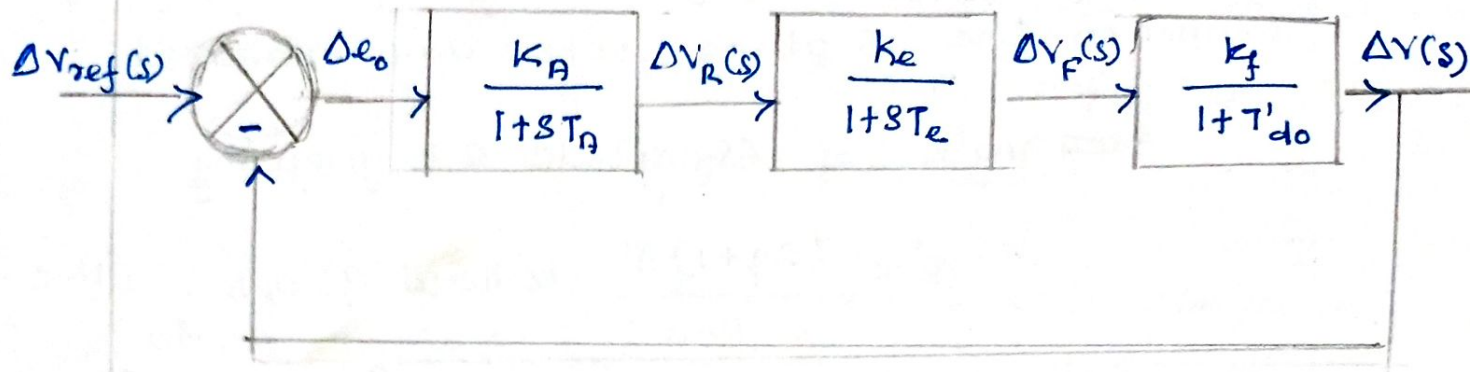 ΔVref(s)
Δe₀
K_A
1+ST_A
ΔV_R(s)
Ke
1+STe
ΔV_F(s)
K_f
1+T'do
ΔV(s)
-